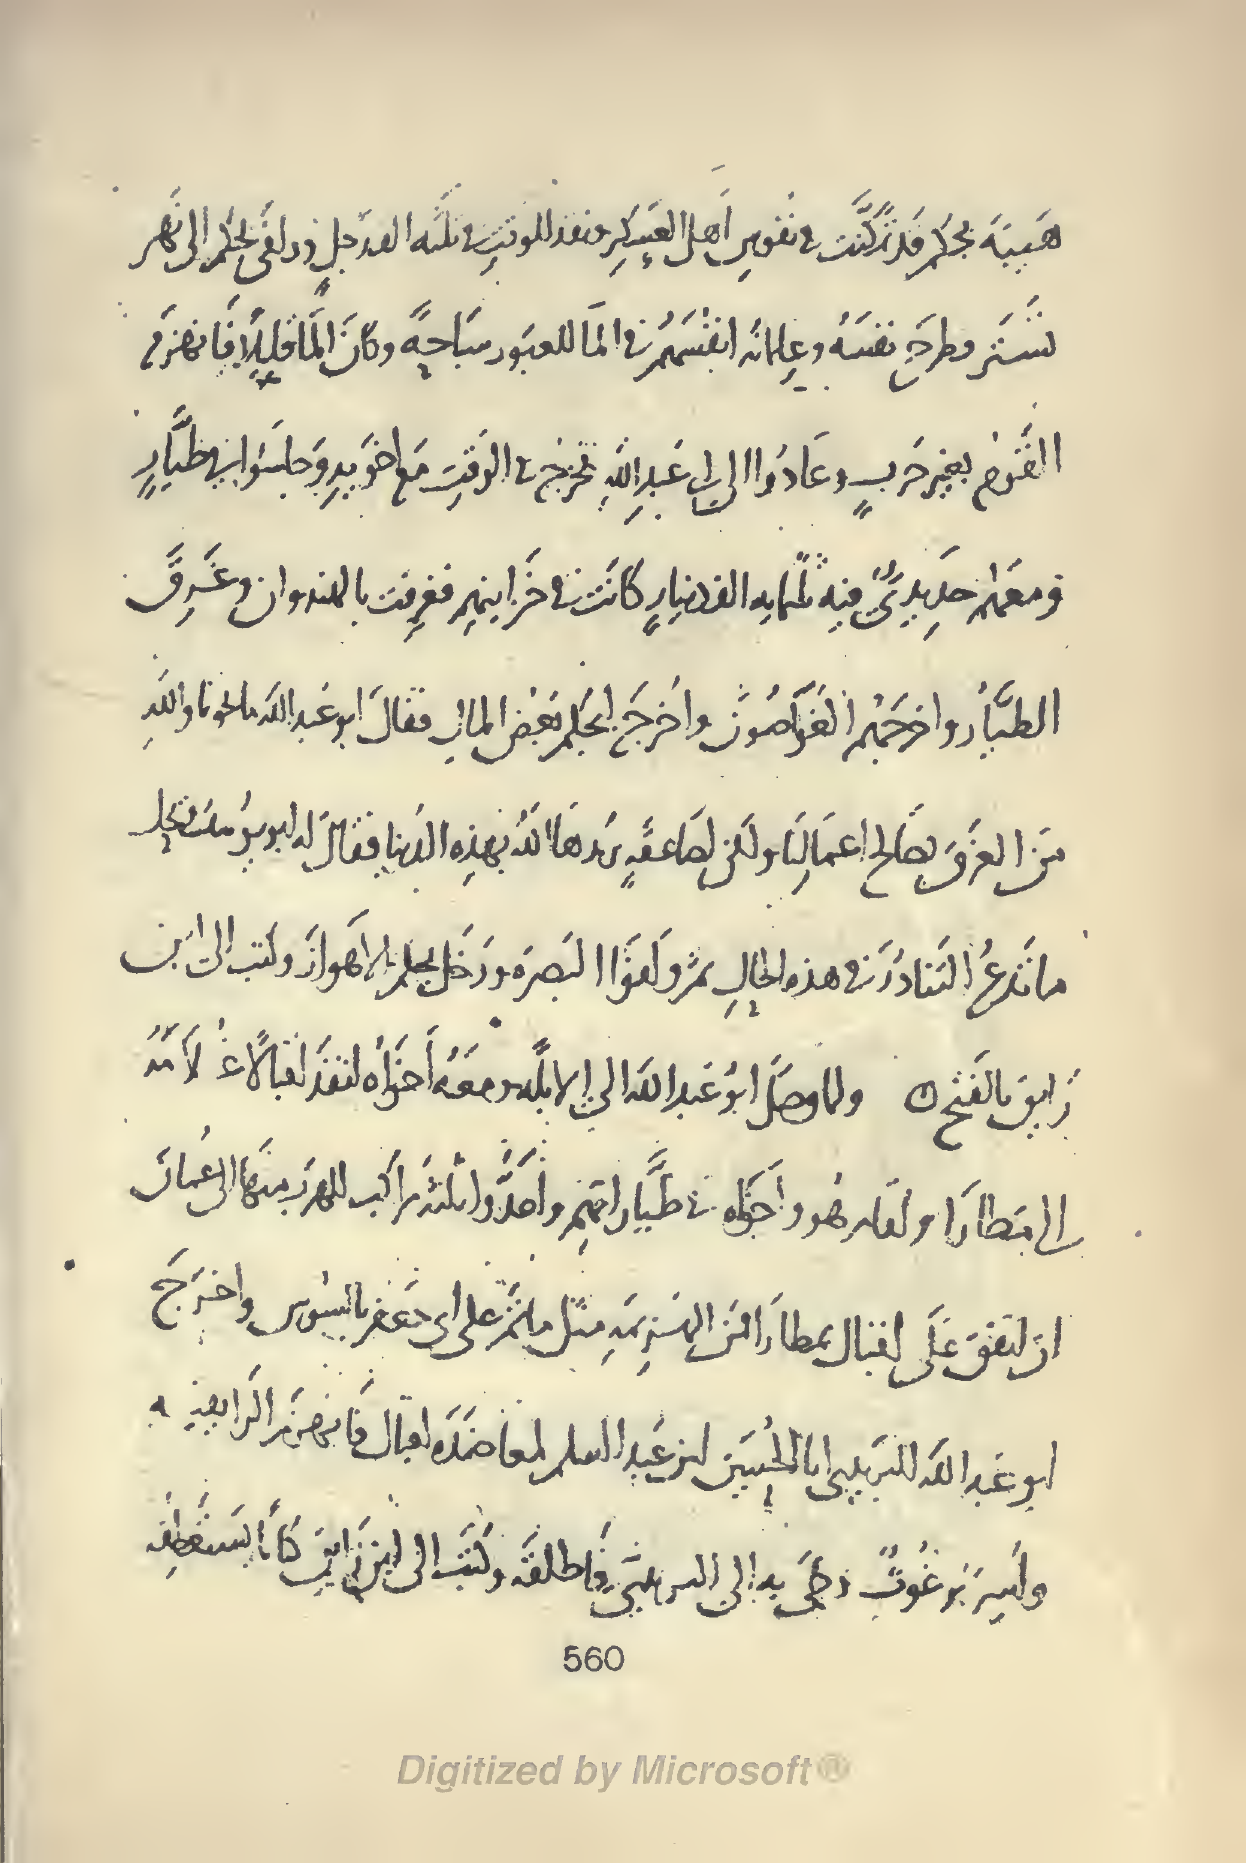 هَيبَة بجكم قد تمكّنت في نفوس اهل العسكر ونفذ للوقت في ثلثه الف رجل ووافى بجكم الى نهر
تستر وطرح نفسه وغلمانه انفسهم في الما للعبور سباحةً وكان الما قليلًا فانهزم
القوم بغير حربٍ وعادوا الى ابي عبد الله فخرج في الوقت مع اخويه وجلسوا في طيّارٍ
ومعهم حديديّ فيه ثلثمايه الف دينارٍ كانت في خزاينهم فغرقت بالنهروان وغرق
الطيّار واخرجهم الغوّاصون واخرج لبجكم بعض المال فقال ابو عبد الله ما نجونا والله
من الغرق بصالح اعمالنا ولكن لصاعقةٍ يريدها الله بهذه الدنيا فقال له ابو يوسف ويحك
ما تدع التنادر في هذه الحال ثم وافوا البصرة ودخل بجكم الاهواز وكتب الى ابن
رايق بالفتح ولما وصل ابو عبد الله الى الابلّه ومعه أخواه انفذ اقبالًا غلامه
الى مطارا واقام هو وأخواه في طيّاراتهم وأعدّوا ثلثة مراكب للهرب منها الى عمان
ان اتفق على اقبال بمطارا من الهزيمة مثل ما تم على ابي جعفر بالسوس واخرج
ابو عبد الله البريدي ابا الحسين ابن عبد السلم لمعاضدة اقبال فانهزم الرايقيه
واُسر برغوثٌ وجي به الى البريدي فاطلقه وكتب الى ابن رايق كتابا يستعطفه
560
Digitized by Microsoft®